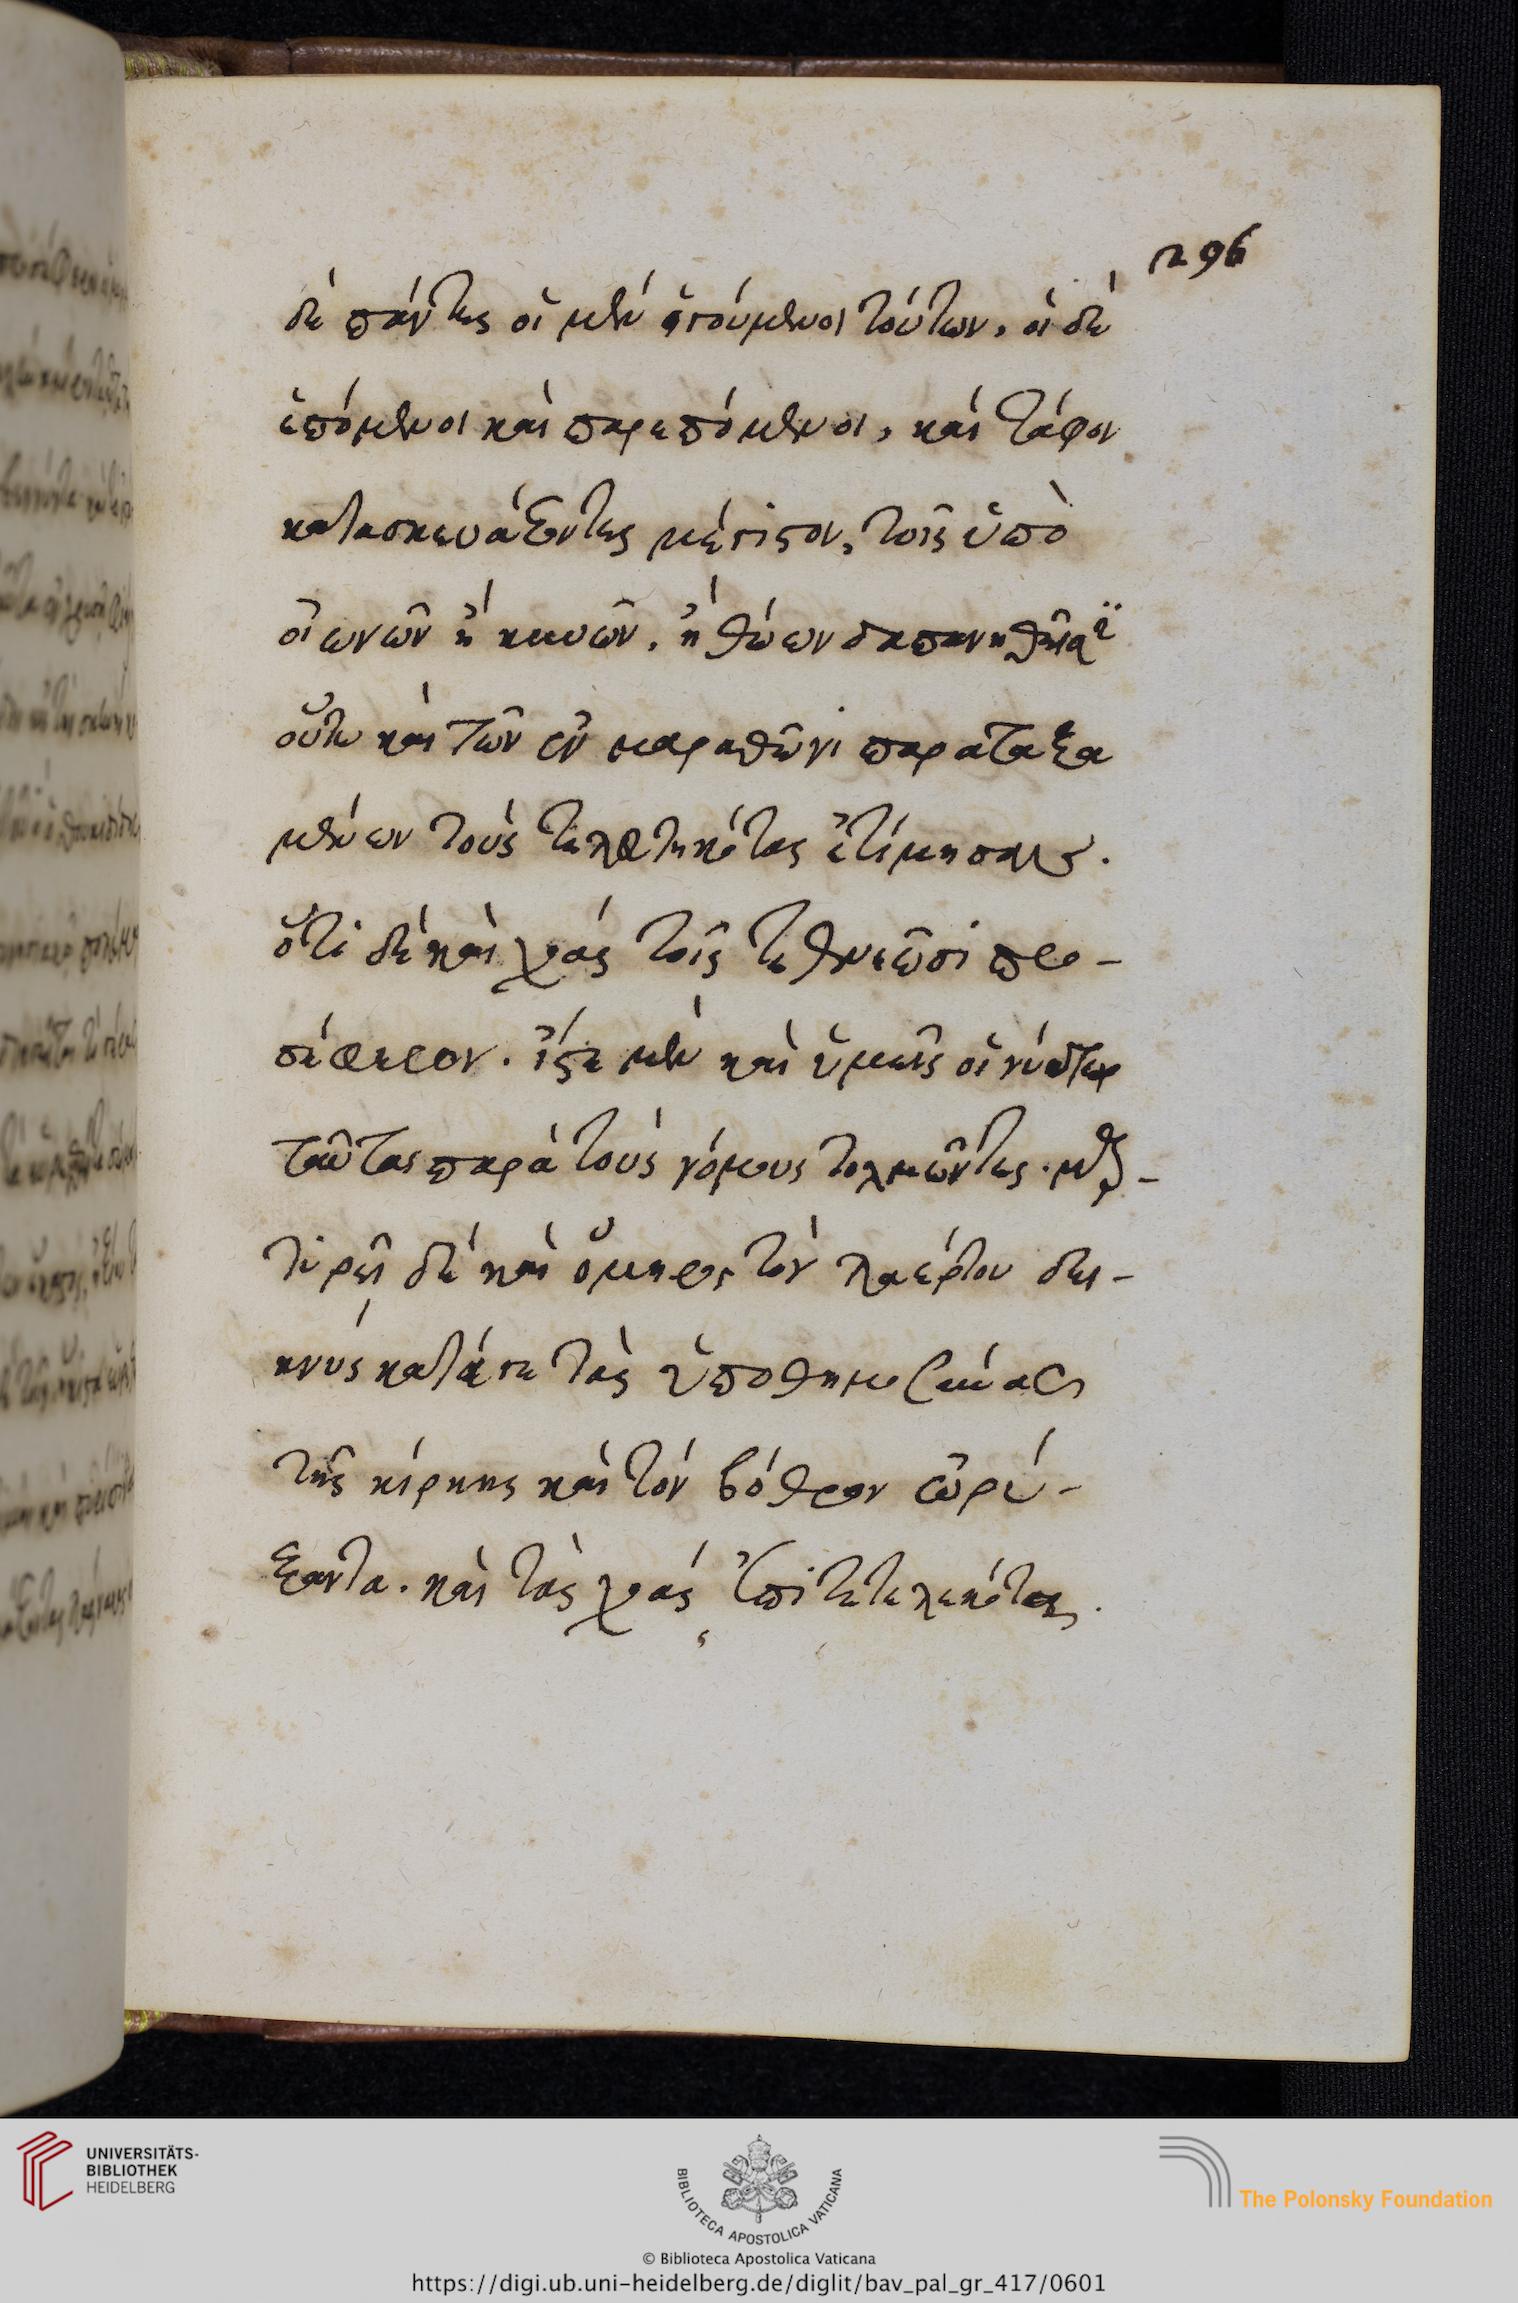 296
δὲ πάντες οἱ μὲν ἡγούμενοι τούτων, οἱ δὲ
ἑπόμενοι καὶ παρεπόμενοι, καὶ τάφον
κατασκευάζοντες μέγιστον, τοῖς ὑπὸ
οἰωνῶν ἢ κυνῶν, ἢ θώων δαπανηθεῖσιν
οὕτω καὶ τῶν ἐν μαραθῶνι παραταξα
μένων τοὺς τελευτηκότας ἐτίμησαν.
ὅτι δὲ καὶ χοὰς τοῖς τεθνεῶσι προ-
σέφερον. ἴστε μὲν καὶ ὑμεῖς οἱ νύκτωρ
ταῦτας παρὰ τοὺς νόμους τολμῶντες. μαρ-
τυρεῖ δὲ καὶ ὅμηρος τὸν λαέρτου δει-
κνὺς κατά γε τὰς ὑποθημοσύνας
τῆς κίρκης καὶ τὸν βόθρον ὠρύ-
ξαντα. καὶ τὰς χοὰς ἐπιτετελεκότας.
UNIVERSITÄTS-
BIBLIOTHEK
HEIDELBERG
BIBLIOTECA APOSTOLICA VATICANA
The Polonsky Foundation
© Biblioteca Apostolica Vaticana
https://digi.ub.uni-heidelberg.de/diglit/bav_pal_gr_417/0601